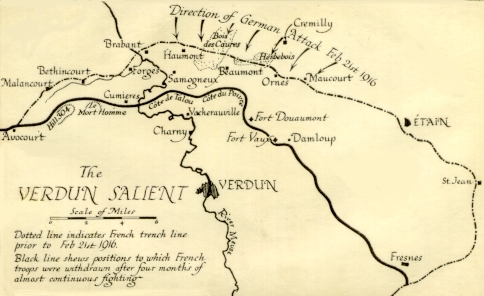 Direction of German Attack Feb 21st 1916
Cremilly
Brabant
Bois des Caures
Haumont
Herbebois
Bethincourt
Forges
Beaumont
Malancourt
Samogneux
Ornes
Maucourt
Cumieres
Côte de Talou
Côte du Poivre
Hill 304
Le Mort Homme
Vacherauville
Fort Douaumont
ÉTAIN
Avocourt
Charny
Fort Vaux
Damloup
The
VERDUN SALIENT
VERDUN
St. Jean
Scale of Miles
0 2 4 6
River Meuse
Dotted line indicates French trench line
prior to Feb 21st 1916.
Black line shews positions to which French
troops were withdrawn after four months of
almost continuous fighting
Fresnes